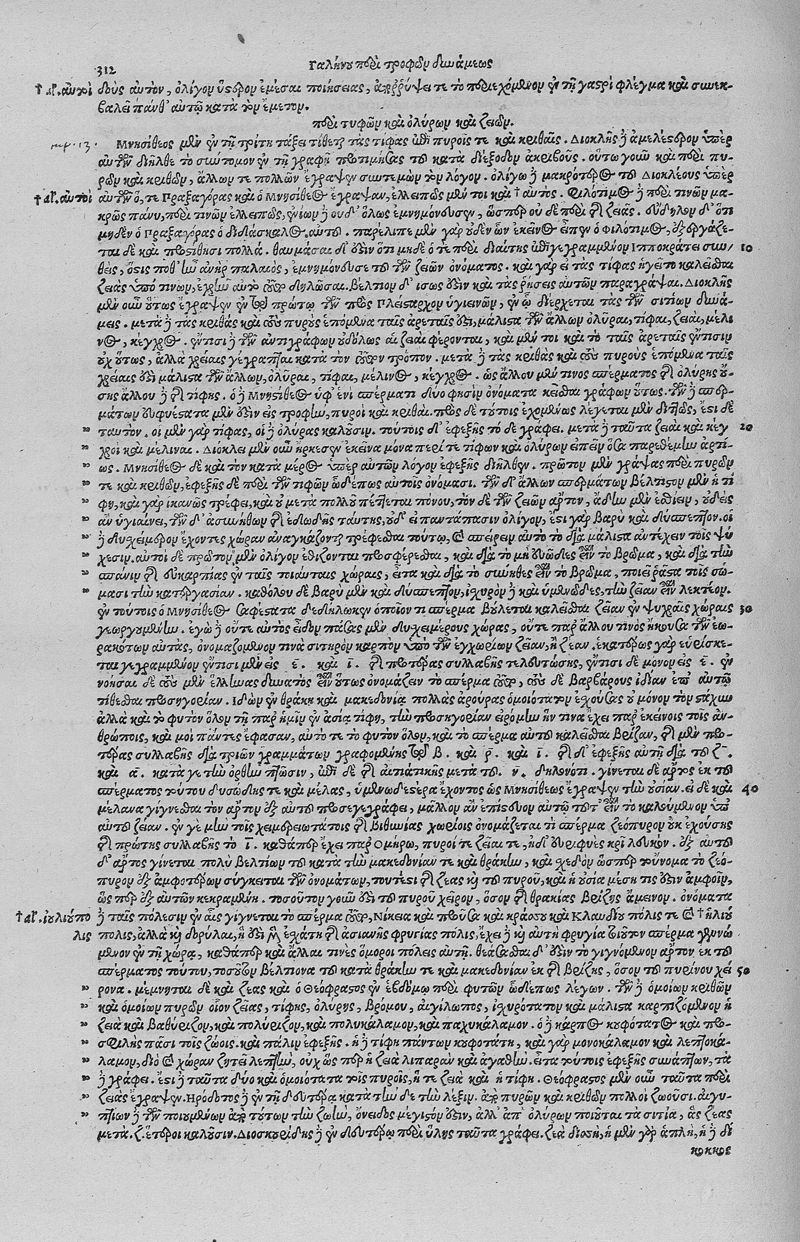 312 Γαλήνου περὶ τροφῶν δυνάμεως
† αὐτοὶ δοὺς αὐτὸν, ὀλίγον ὕστερον ἐμέσαι ποιήσειας, ἀπορρύψει τε τὸ περιεχόμενον ἐν τῇ γαστρὶ φλέγμα καὶ συνεκ-
βαλεῖ πάνθ' αὑτῷ κατὰ τὸν ἔμετον.
περὶ τυφῶν καὶ ὀλύρων καὶ ζειῶν.
κεφ. 13. Μνησίθεος μὲν ἐν τῇ τρίτῃ τάξει τίθεται τὰς τίφας ἐπὶ πυροῖς τε καὶ κριθαῖς. Διοκλῆς δὲ ἀμελέστερον ὑπὲρ
αὐτῶν διῆλθε τὸ σύντομον ἐν τῇ γραφῇ προτιμήσας τοῦ κατὰ διέξοδον ἀκριβοῦς. οὕτω γοῦν καὶ περὶ πυ-
ρῶν καὶ κριθῶν, ἄλλων τε πολλῶν ἔγραψεν συντεμὼν τὸν λόγον. ὀλίγῳ δὲ μακρότερον τοῦ Διοκλέους ὑπὲρ
† αὐτοὶ αὐτῶν ὅ, τε Πραξαγόρας καὶ ὁ Μνησίθεος ἔγραψαν, ἐλλειπῶς μέν τοι καὶ † αὐτος. Φιλότιμος δὲ περὶ τινῶν μα-
κρῶς πάνυ, περὶ τινῶν ἐλλειπῶς, ἐνίων δὲ οὐδ' ὅλως ἐμνημόνευσεν, ὥσπερ οὐδὲ περὶ τῆς ζειᾶς. εὔδηλον δ' ὅτι
μηδὲν ὁ Πραξαγόρας ὁ διδάσκαλος αὐτοῦ. παρέλιπε μὲν γὰρ οὐδὲν ὧν ἐκεῖνος εἶπεν ὁ φιλότιμος, ἐξεργάζε-
ται δὲ καὶ προστίθησι πολλά. θαυμάσαι δ' ἐστὶν ὅτι μηδὲ ὁ τὸ περὶ διαίτης ἐπιγεγραμμένον Ἱπποκράτει συν- 10
θεὶς, ὅστις ποθ' ἦν ἀνὴρ παλαιὸς, ἐμνημόνευσε τοῦ τῶν ζειῶν ὀνόματος. καὶ γὰρ εἰ τὰς τίφας ἡγεῖτο καλεῖσθαι
ζειὰς ὑπό τινων, ἐχρῆν αὐτὸ τοῦτο δηλῶσαι. Βέλτιον δ' ἴσως ἐστὶν καὶ τὰς ῥήσεις αὐτῶν παραγράψαι. Διοκλῆς
μὲν οὖν οὕτως ἔγραψεν ἐν τῷ πρώτῳ τῶν πρὸς Πλείσταρχον ὑγιεινῶν, ἐν ᾧ διέρχεται τὰς τῶν σιτίων δυνά-
μεις. μετὰ δὲ τὰς κριθὰς καὶ τοὺς πυροὺς ἑπόμεναι ταῖς ἀρεταῖς εἰσι, μάλιστα τῶν ἄλλων ὀλύραι, τίφαι, ζειαὶ, μέλι
νος, κέγχρος. ἔν τισι δὲ τῶν ἀντιγράφων οὐδ' ὅλως αἱ ζειαὶ φέρονται, καὶ μέν τοι καὶ τὸ ταῖς ἀρεταῖς ἔν τισιν
οὐχ οὕτως, ἀλλὰ χρείαις γέγραπται κατὰ τὸν τοῦτον τρόπον. μετὰ δὲ τὰς κριθὰς καὶ τοὺς πυροὺς ἑπόμενα ταῖς
χρείαις ἐστὶ μάλιστα τῶν ἄλλων, ὀλύραι, τίφαι, μέλινος, κέγχρος. ὡς ἄλλου μέν τινος σπέρματος τῆς ὀλύρης οὔ-
σης ἄλλου δὲ τῆς τίφης. ὁ δὲ Μνησίθεος ὑφ' ἑνὶ σπέρματι δύο φησὶν ὀνόματα κεῖσθαι γράφων οὕτως. τῶν δὲ σπερ-
μάτων εὐφυέστατα μέν ἐστιν εἰς τροφὴν, πυροὶ καὶ κριθαί. πρὸς δὲ τούτοις ἐχομένως λέγεται μὲν διττῶς, ἔστι δὲ
" ταυτόν. οἱ μὲν γὰρ τίφας, οἱ δὲ ὀλύρας καλοῦσιν. τούτοις δ' ἐφεξῆς τόδε γράφει. μετὰ δὲ ταῦτα ζειαὶ καὶ κέγ- 20
" χροι καὶ μέλιναι. Διοκλεῖ μὲν οὖν ἤρκεσεν ἐκεῖνα μόνα περί τε τίφων καὶ ὀλύρων εἰπεῖν ὅσα παρεθέμην ἀρτί-
" ως. Μνησίθεος δὲ καὶ τὸν κατὰ μέρος ὑπὲρ αὐτῶν λόγον ἐφεξῆς διῆλθεν. πρῶτον μὲν γράψας περὶ πυρῶν
" τε καὶ κριθῶν, ἐφεξῆς δὲ περὶ τῶν τιφῶν ὧδέ πως αὐτοῖς ὀνόμασι. τῶν δ' ἄλλων σπερμάτων βέλτιστον μὲν ἡ τί
" φη, καὶ γὰρ ἱκανῶς τρέφει, καὶ οὐ μετὰ πολλοῦ πέττεται πόνου, τὸν δὲ τῶν ζειῶν ἄρτον, ἄδην μὲν ἐσθίειν, οὐδεὶς
" ἂν ὑγιαίνει, τῶν δ' ἀσυνήθων τῆς ἐδωδῆς ταύτης, οὐδ' εἰ παντάπασιν ὀλίγον, ἔστι γὰρ βαρὺ καὶ δύσπεπτον. οἱ
" δὲ δυσχείμερον ἔχοντες χώραν ἀναγκάζονται τρέφεσθαι τούτῳ, καὶ σπείρειν αὐτὸ τὸ διὰ μάλιστα ἀντέχειν τοῖς ψύ
" χεσιν. αὐτοὶ δὲ πρῶτον μὲν ὀλίγον ἐθίζονται προσφέρεσθαι, καὶ διὰ τὸ μὴ εὐῶδες εἶναι τὸ βρῶμα, καὶ διὰ τὴν
" σπάνιν τῆς εὐκαρπίας ἐν ταῖς τοιαύταις χώραις, εἶτα καὶ διὰ τὸ σύνηθες εἶναι τὸ βρῶμα, ποιεῖ ῥᾷστα τοῖς σώ-
" μασι τὴν κατεργασίαν. καθόλου δὲ βαρὺ μὲν καὶ δύσπεπτον, ἰσχυρὸν δὲ καὶ ὑμενῶδες, τὴν ζειὰν εἶναι λεκτέον.
ἐν τούτοις ὁ Μνησίθεος σαφέστατα δεδήλωκεν ὁποῖόν τι σπέρμα βούλεται καλεῖσθαι ζειὰν ἐν ψυχραῖς χώραις 30
γεωργουμένην. ἐγὼ δὲ οὔτε αὐτὸς εἶδον πάσας μὲν δυσχειμέρους χώρας, οὔτε παρ' ἄλλου τινὸς ἤκουσα τῶν ἑω-
ρακότων αὐτὰς, ὀνομαζόμενόν τινα σιτηρὸν καρπὸν ὑπὸ τῶν ἐγχωρίων ζειὰν, ἢ ζέαν. ἑκατέρως γὰρ εὑρίσκε-
ται γεγραμμένον ἔν τισι μὲν εἰς ε. καὶ ι. τῆς προτέρας συλλαβῆς τελευτώσης, ἔν τισι δὲ μόνον εἰς ε. ἐν
νοῆσαι δὲ τοὺς μὲν ἕλληνας δυνατὸς εἶναι οὕτως ὀνομάζειν τὸ σπέρμα τοῦτο, τοὺς δὲ Βαρβάρους ἰδίαν ἐπ' αὐτῷ
τίθεσθαι προσηγορίαν. Ἰδὼν ἐν θρᾴκῃ καὶ μακεδονίᾳ πολλὰς ἀρούρας ὁμοιότατον ἐχούσας οὐ μόνον τὸν στάχυν
ἀλλὰ καὶ τὸ φυτὸν ὅλον τῇ παρ' ἡμῖν ἐν ἀσίᾳ τίφῃ, τὴν προσηγορίαν εἰρόμην ἥν τινα ἔχει παρ' ἐκείνοις τοῖς ἀν-
θρώποις, καὶ μοι πάντες ἔφασαν, αὐτό τε τὸ φυτὸν ὅλον, καὶ τὸ σπέρμα αὐτοῦ καλεῖσθαι βρίζαν, τῆς μὲν προ-
τέρας συλλαβῆς διὰ τριῶν γραμμάτων γραφομένης τοῦ β. καὶ ρ. καὶ ι. τῆς δ' ἐφεξῆς αὐτῇ διὰ τοῦ ζ.
καὶ α. κατά γε τὴν ὀρθὴν πτῶσιν, ἐπὶ δὲ τῆς αἰτιατικῆς μετὰ τοῦ. ν. δηλονότι. γίνεται δὲ ἄρτος ἐκ τοῦ
σπέρματος τούτου δυσώδης τε καὶ μέλας, ὑμενώδέστερα ἔχοντος ὡς Μνησίθεος ἔγραψεν τὴν οὐσίαν. εἰ δὲ καὶ 40
μέλανα γίγνεσθαι τὸν ἄρτον ἐξ αὐτοῦ προσεγεγράφει, μᾶλλον ἂν ἐπίστευον αὐτῷ τοῦτ' εἶναι τὸ καλούμενον ὑπ'
αὐτοῦ ζειάν. ἔν γε μὴν τοῖς χειμεριωτάτοις τῆς Βιθυνίας χωρίοις ὀνομάζεταί τι σπέρμα ζεόπυρον οὐκ ἐχούσης
τῆς πρώτης συλλαβῆς τὸ ι. καθάπερ ἔχει παρ' ὁμήρῳ, πυροί τε ζειαί τε, ἠδ' εὐρυφυὲς κρῖ λευκόν. ἐξ αὐτοῦ
δ' ἄρτος γίνεται πολὺ βελτίων τοῦ κατὰ τὴν μακεδονίαν τε καὶ θρᾴκην, καὶ σχεδὸν ὥσπερ τοὔνομα τὸ ζεό-
πυρον ἐξ ἀμφοτέρων σύγκειται τῶν ὀνομάτων, τουτέστι τῆς ζέας καὶ τοῦ πυροῦ, καὶ ἡ οὐσία μέση τίς ἐστιν ἀμφοῖν,
ὥσπερ ἐξ αὐτῶν κεκραμένη. τοσοῦτον γοῦν ἐστι τοῦ πυροῦ χεῖρον, ὅσον τῆς θρᾳκίας βρίζης ἄμεινον. ὀνόματα
† ἰουλιούπο δὲ ταῖς πόλεσιν ἐν αἷς γίγνεται τὸ σπέρμα τοῦτο, Νίκεια καὶ προῦσα καὶ κράσου καὶ Κλαυδουπόλις τε καὶ † ἡλιου
λις πόλις, ἀλλὰ καὶ δορύλαι, ἣ ἔστι μὲν ἐσχάτη τῆς ἀσιανῆς φρυγίας πόλις, ἔχει δὲ καὶ αὐτὴ φρυγία τοιοῦτον σπέρμα γεννώ
μενον ἐν τῇ χώρᾳ, καθάπερ καὶ ἄλλαι τινὲς ὅμοροι πόλεις αὐτῇ. θεάσασθαι δ' ἔστιν τὸ γιγνόμενον ἄρτον ἐκ τοῦ
σπέρματος τούτου, τοσοῦτον βελτίονα τοῦ κατὰ θρᾴκην τε καὶ μακεδονίαν ἐκ τῆς βρίζης, ὅσον τοῦ πυρίνου χεί 50
" ρονα. μέμνηται δὲ καὶ ζέας καὶ ὁ Θεόφραστος ἐν ἑβδόμῳ περὶ φυτῶν ὧδέ πως λέγων. τῶν δὲ ὁμοίων κριθῶν
" καὶ ὁμοίων πυρῶν οἷον ζειάς, τίφης, ὀλύρης, βρόμου, αἰγίλωπος, ἰσχυρότατον καὶ μάλιστα καρπιζόμενον ἡ
" ζειὰ καὶ βαθύριζον, καὶ πολύριζον, καὶ πολυκάλαμον, καὶ παχυκάλαμον. ὁ δὲ καρπὸς κουφότατος καὶ προ-
" σφιλὴς πᾶσι τοῖς ζώοις. καὶ πάλιν ἐφεξῆς. ἡ δὲ τίφη πάντων κουφοτάτη, καὶ γὰρ μονοκάλαμον καὶ λεπτοκά-
" λαμον, διὸ καὶ χώραν ζητεῖ λεπτὴν, οὐχ ὥσπερ ἡ ζειὰ λιπαρὰν καὶ ἀγαθήν. εἶτα τούτοις ἐφεξῆς συνάπτων, τά
" δε γράφει. ἔστι δὲ ταῦτα δύο καὶ ὁμοιότατα τοῖς πυροῖς, ἥ τε ζειὰ καὶ ἡ τίφη. Θεόφραστος μὲν οὖν ταῦτα περὶ
" ζειᾶς ἔγραψεν. Ἡρόδοτος δὲ ἐν τῇ δευτέρᾳ κατὰ τήνδε τὴν λέξιν. ἀπὸ πυρῶν καὶ κριθῶν πολλοὶ ζώουσι. αἰγυ-
" πτίων δὲ τῶν ποιουμένων ἀπὸ τούτων τὴν ζωὴν, ὄνειδος μέγιστόν ἐστιν, ἀλλ' ἀπ' ὀλύρων ποιοῦνται σιτία, ἃς ζέας
μετὰ. ζ. ἕτεροι καλοῦσιν. Διοσκορίδης δὲ ἐν δευτέρῳ περὶ ὕλης ταῦτα γράφει. ζεὰ δισσὴ, ἡ μὲν γὰρ ἁπλῆ, ἡ δὲ δί
κοκκος